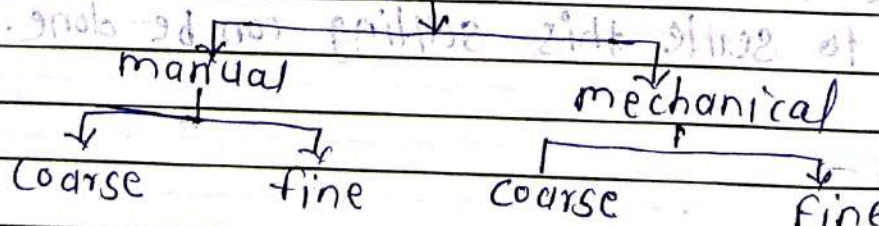 manual
mechanical
Coarse fine Coarse fine